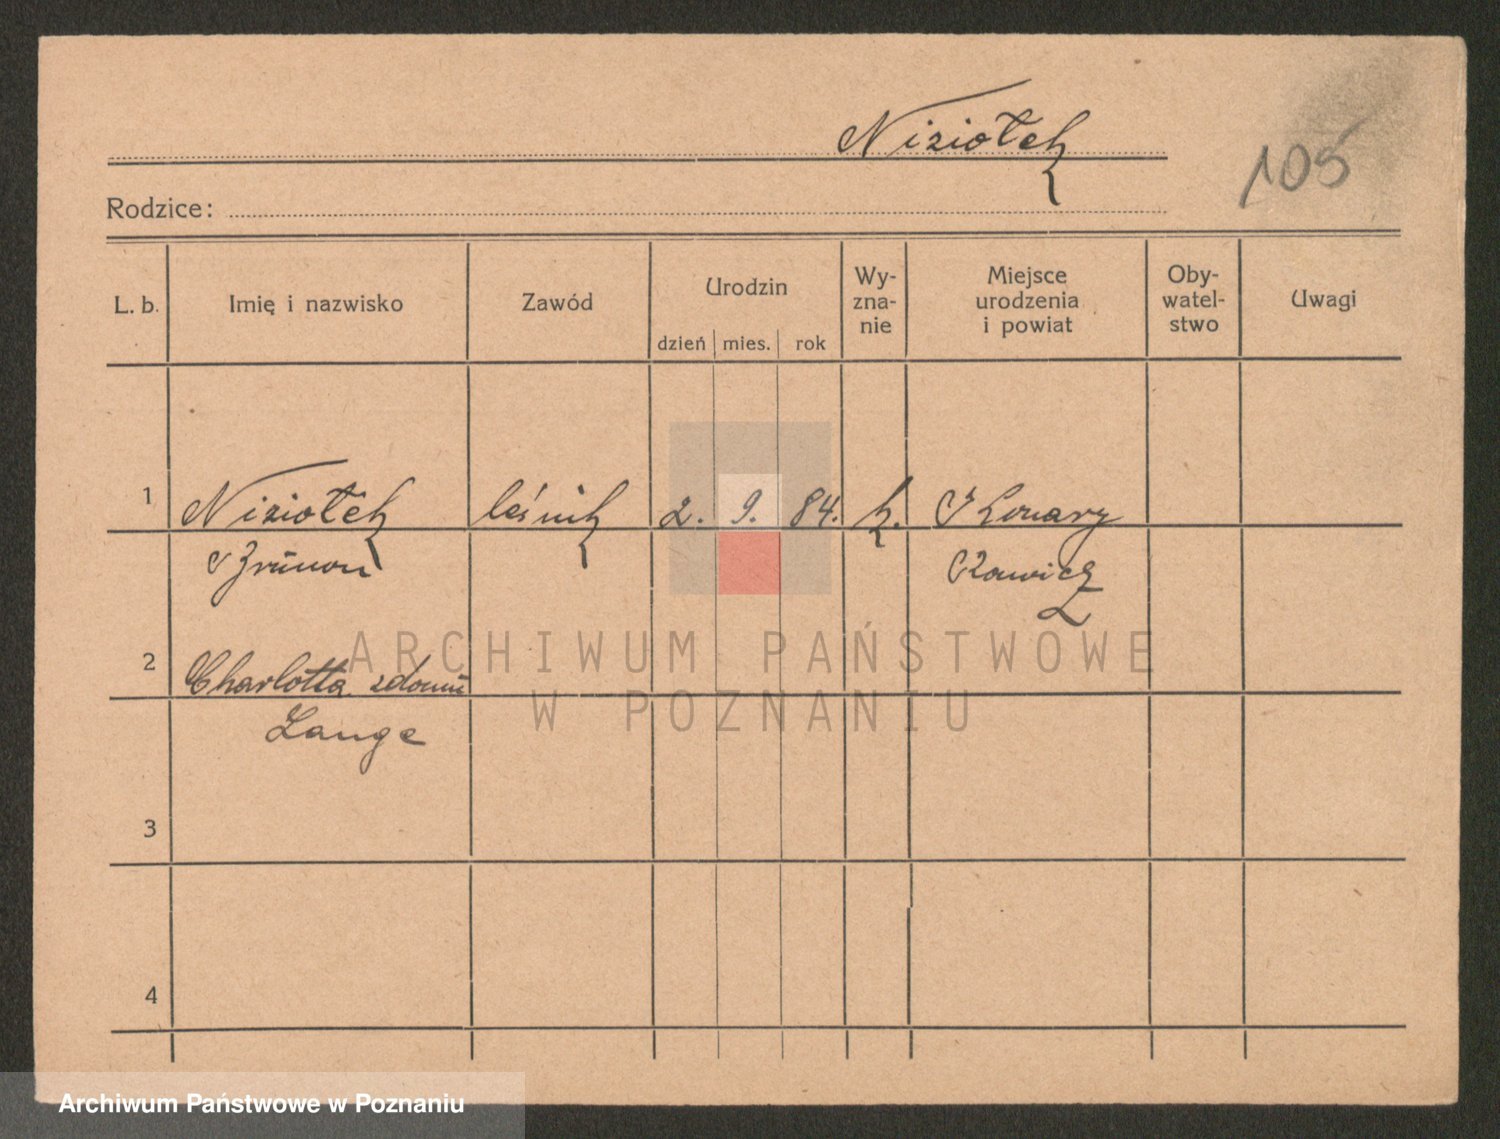 Niziołek
105
Rodzice:
L. b. Imię i nazwisko Zawód Urodzin dzień mies. rok Wy-zna-nie Miejsce urodzenia i powiat Oby-watel-stwo Uwagi
1 Niziołek leśnik 2. 9. 84. k. Konary
Rawicz
2 Charlotta zdomu
Lange
3
4
ARCHIWUM PAŃSTWOWE
W POZNANIU
Archiwum Państwowe w Poznaniu